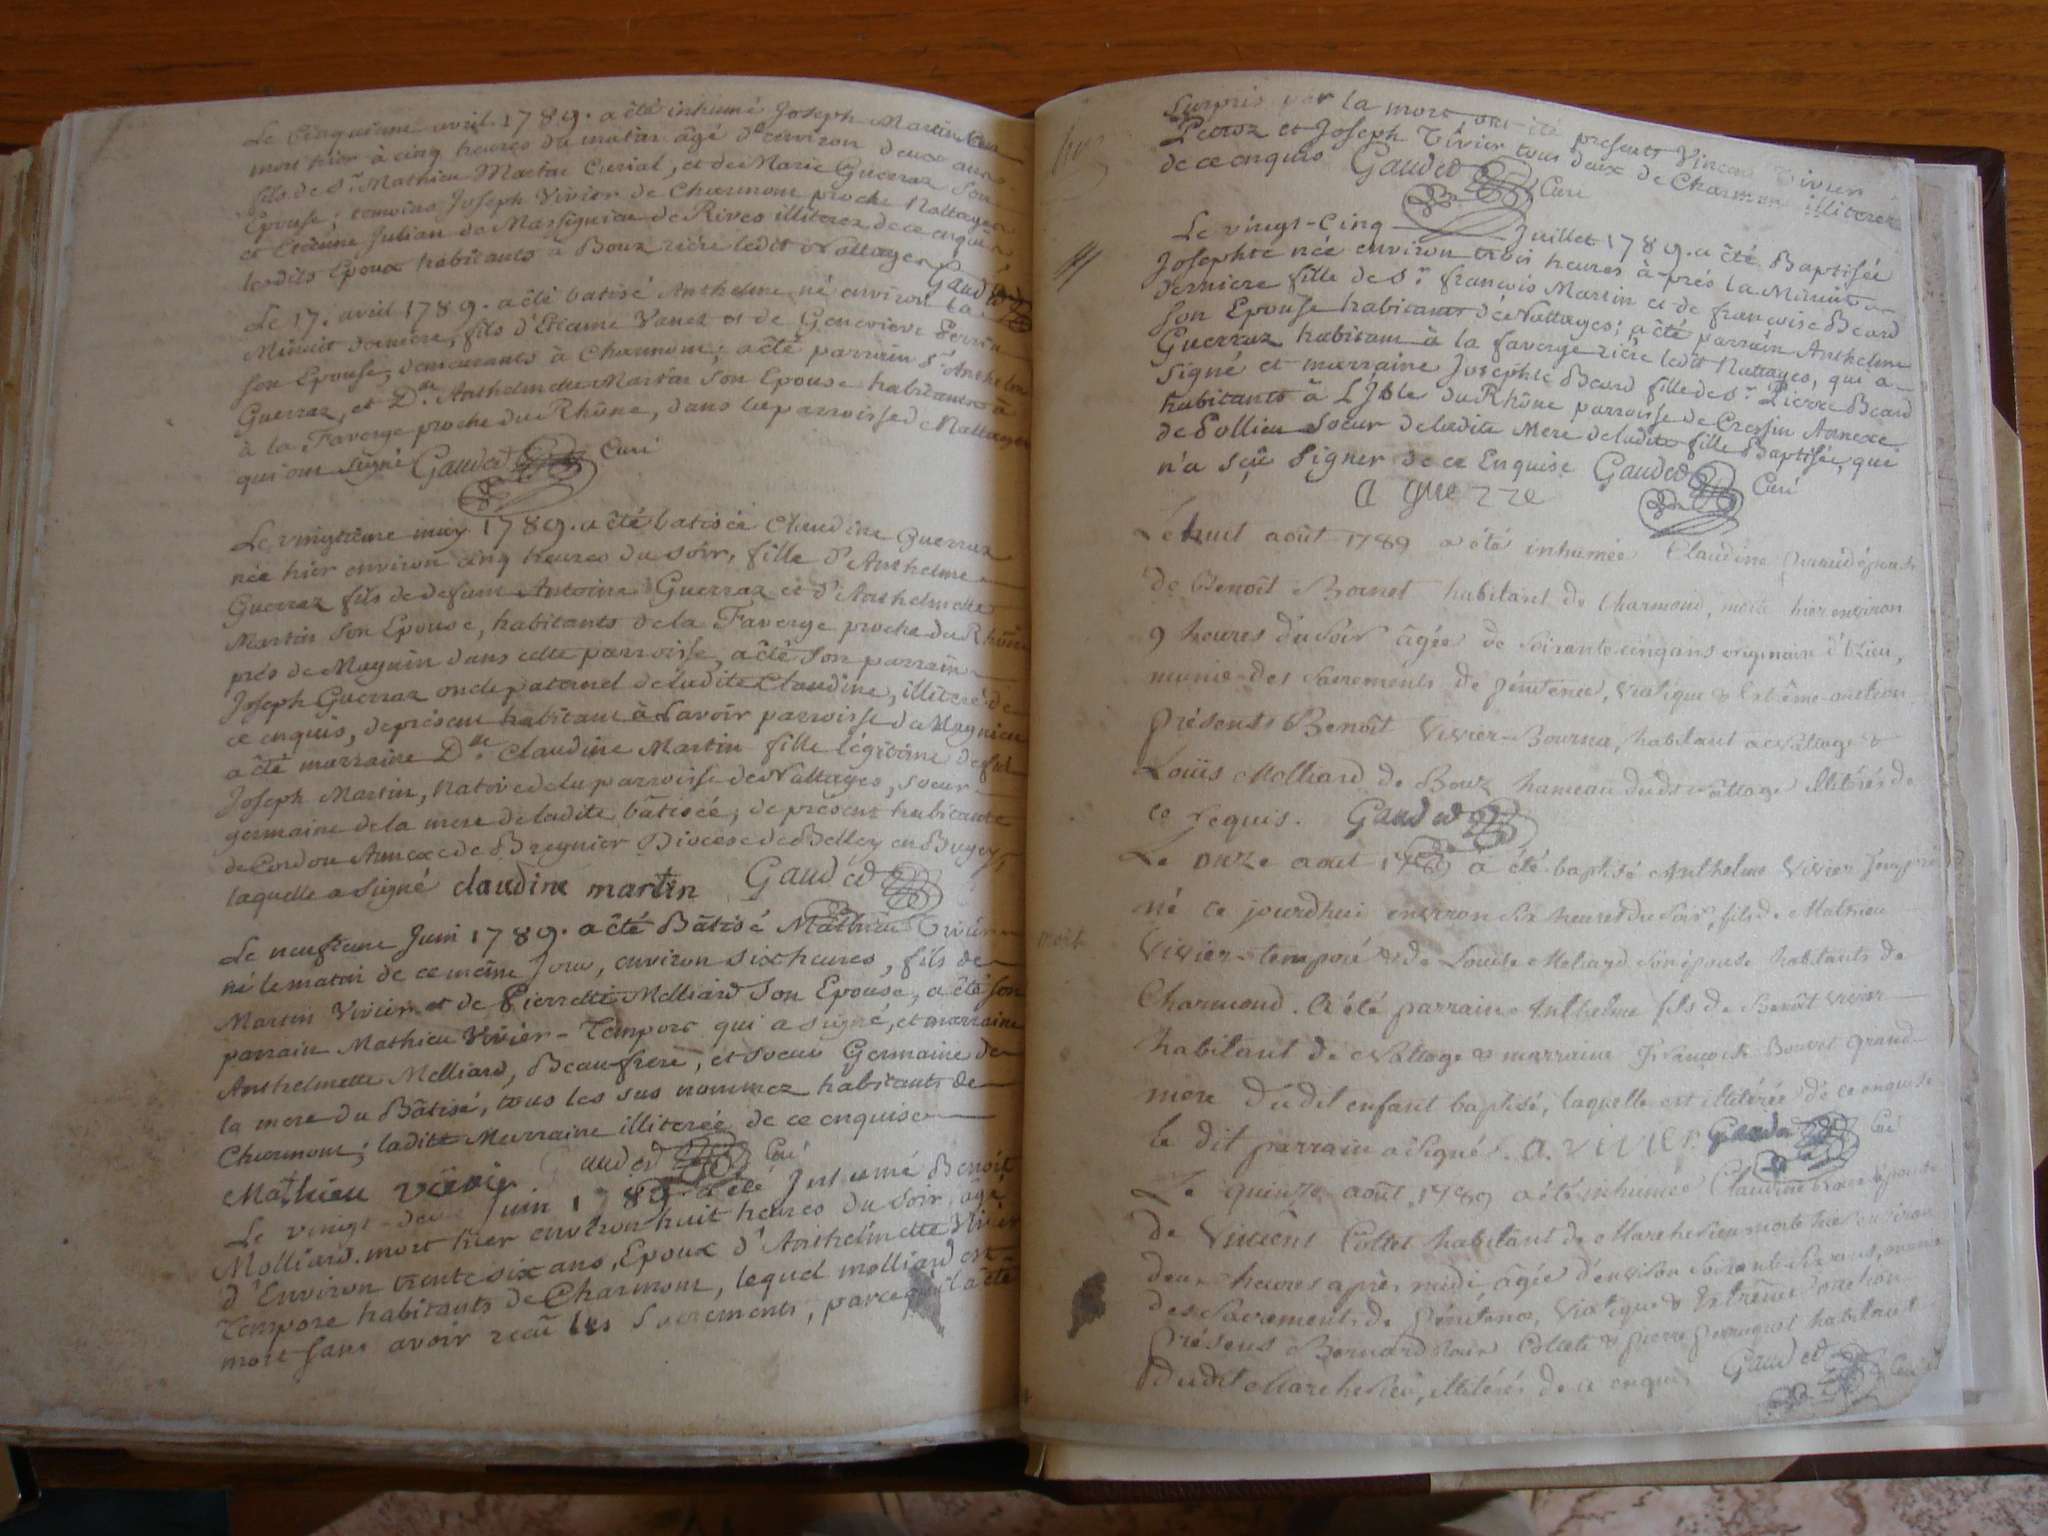 Le cinquieme avril 1789. a êté inhumé Joseph Martin
mort hier à cinq heures du matin âgé d'environ deux ans
fils de Sr. Mathieu Martin Curial, et de Marie Guerraz son
Epouse; temoins Joseph Vivier de Charmont proche Nattages
et Etienne Julian de Massignieu de Rives illiterez de ce enquis
lesdits Epoux habitants à Bouz riére ledit Nattages Gaudet
Le 17. avril 1789. a êté batisé Anthelme né environ la
Minuit derniere, fils d'Etienne Vanet et de Genevieve Perrin
son Epouse, demeurants à Charmont; a êté parrain Sr. Anthelme
Guerraz, et Dlle. Anthelmette Martin son Epouse habitants à
à la Faverge proche du Rhône, dans la parroisse de Nattages
qui ont signé Gaudet Curé
Le vingtieme may 1789. a êté batisée Claudine Guerraz
née hier environ cinq heures du soir, fille d'Anthelme
Guerraz fils de defunt Antoine Guerraz et d'Anthelmette
Martin son Epouse, habitants de la Faverge proche du Rhône
prés de Magnin dans cette parroisse, a êté son parrain
Joseph Guerraz oncle paternel de ladite Claudine, illiteré de
ce enquis, de présent habitant à Lavoir parroisse de Magnieu
a êté marraine Dlle. Claudine Martin fille légitime de feu
Joseph Martin, native de la parroisse de Nattages, soeur
germaine de la mere de ladite bâtisée, de present habitante
de Cordon Annexe de Bregnier Diocese de Belley en Bugey,
laquelle a signé claudine martin Gaudet
Le neufieme Juin 1789. a êté Bâtisé Mathieu Vivier
né le matin de ce même Jour, environ six heures, fils de
Martin Vivier et de Pierrette Melliard son Epouse, a êté son
parrain Mathieu Vivier-Tempore qui a signé, et marraine
Anthelmette Melliard, Beaufrere, et soeur Germaine de
la mere du Bâtisé, tous les sus nommez habitants de
Charmont; ladite Marraine illiterée de ce enquise
Mathieu vivie Gaudet Curé
Le vingt-deux Juin 1789. a êté Inhumé Benoit
Molliard mort hier environ huit heures du soir, âgé
d'Environ trente six ans, Epoux d'Anthelmette Vivier
Tempore habitants de Charmont, lequel molliard est
mort sans avoir reçû les Sacrements, parcequ'il a êté
surpris par la mort, ont été presents Vincent Vivier
Peroz et Joseph Vivier tous deux de Charmont illiterez
de ce enquis Gaudet Curé
Le vingt-cinq Juillet 1789. a êté Baptisée
Josephte née environ trois heures à prés la Minuit
derniere fille de Sr. francois Martin et de francoise Beard
son Epouse habitants dé Nattages; a êté parrain Anthelme
Guerraz habitant à la faverge riére ledit Nattages, qui a
signé et marraine Josephte Beard fille de Sr. Pierre Beard
habitants à L'Isle du Rhône parroisse de Cressin Annexe
de Pollieu soeur de ladite Mere de ladite fille Baptisée, qui
n'a sçû signer de ce Enquise Gaudet Curé
a guerre
Le huit août 1789 a été inhumée Claudine épouse
de Benoît Bornet habitant de Charmond, morte hier environ
9 heures du soir âgée de soixante cinq ans originaire d'Izieu,
munie des sacrements de pénitence, viatique & Extrême-onction
présents Benoît Vivier-Bournu, habitant a Nattage &
Loüis Molliard de Bouz hameau dudt Nattage illitérés de
ce requis. Gaudet
Le onze aout 1789 a été baptisé Anthelme Vivier Temporé
né ce jourdhui environ six heures du soir, fils de Mathieu
mort
Vivier-temporé & de Louise Meliard son épouse habitants de
Charmond. A été parrain Anthelme fils de Benoît Vivier
habitant de Nattage & marraine Françoise Bouvet grand
mère dudit enfant baptisé, laquelle est illitérée de ce enquise
le dit parrain a signé. A. VIVIER Gaudet Curé
Le quinze août 1789 a été inhumée Claudine épouse
de Vincent Collet habitant de Marchelieu morte hier environ
deux heures après midi, âgée d'environ soixante six ans, munie
des Sacrements de pénitence, viatique & Extrême onction
présens Bernard Collet & pierre perruquet habitant
dudit Marchelieu, illitérés de ce enquis Gaudet Curé